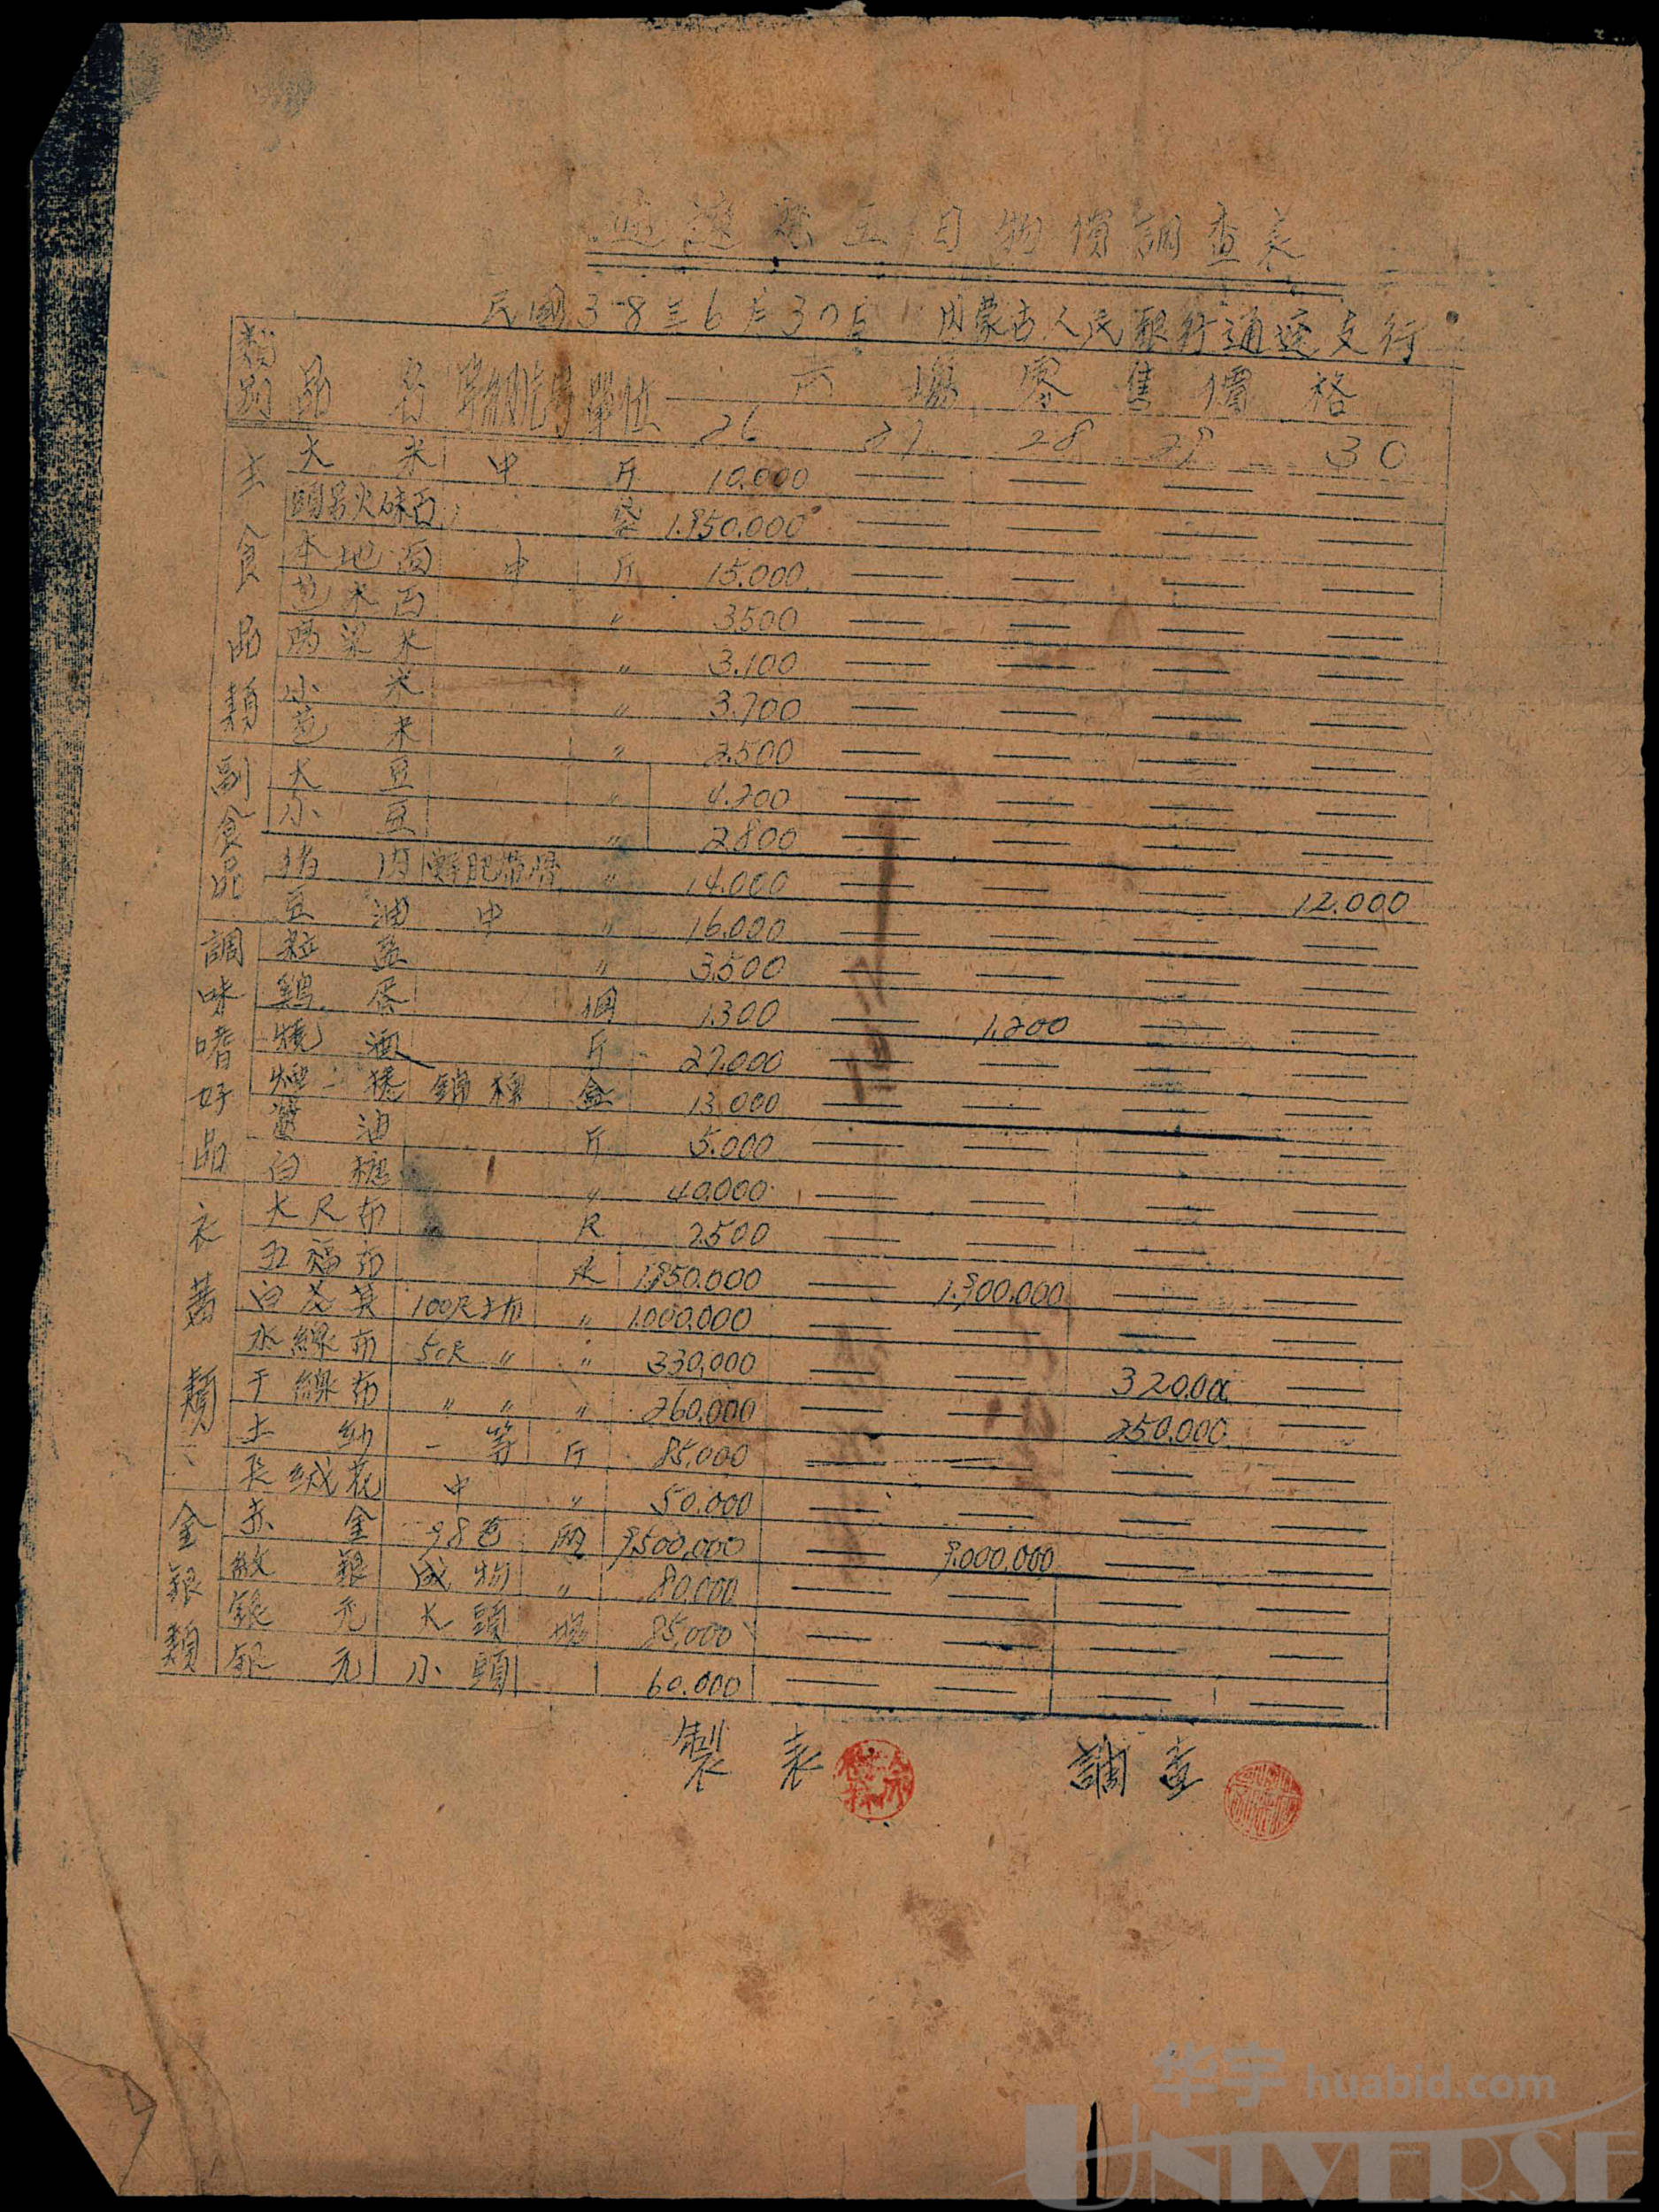 通遼縣五日物價調查表
民國38年6月30日 内蒙古人民銀行通遼支行
類別 品名 單位 市場零售價格
26 27 28 29 30
主食品類
大米 中 斤 10.000 — — — —
頭号火碌面 袋 1.950.000 — — — —
本地面 中 斤 15.000 — — — —
苞米面 〃 3500 — — — —
高粱米 〃 3.100 — — — —
小米 〃 3.700 — — — —
苞米 〃 2.500 — — — —
副食品
大豆 〃 4.200 — — — —
小豆 〃 2800 — — — —
猪肉 鮮肥帶骨 〃 14.000 — — — 12.000
豆油 中 〃 16.000 — — — —
調味嗜好品
粒盐 〃 3.500 — — — —
鷄蛋 個 1.300 — 1.200 — —
燒酒 斤 27.000 — — — —
煙捲 盒 13.000 — — — —
醬油 斤 5.000 — — — —
白糖 〃 40.000 — — — —
衣着類
大尺布 尺 2500 — — — —
五福布 疋 1.950.000 — 1.900.000 — —
100尺土布 〃 1.000.000 — — — —
水線布 50尺 〃 〃 330.000 — — 320.00 —
干線布 〃 〃 〃 260.000 — — 250.000 —
土紗 一等 斤 85.000 — — — —
長絨花 中 〃 50.000 — — — —
金銀類
赤金 98色 両 9.500.000 — 9.000.000 — —
散銀 成物 〃 80.000 — — — —
銀元 大頭 塊 85.000 — — — —
銀元 小頭 60.000 — — — —
製表 調查
华宇 huabid.com
UNIVERSE